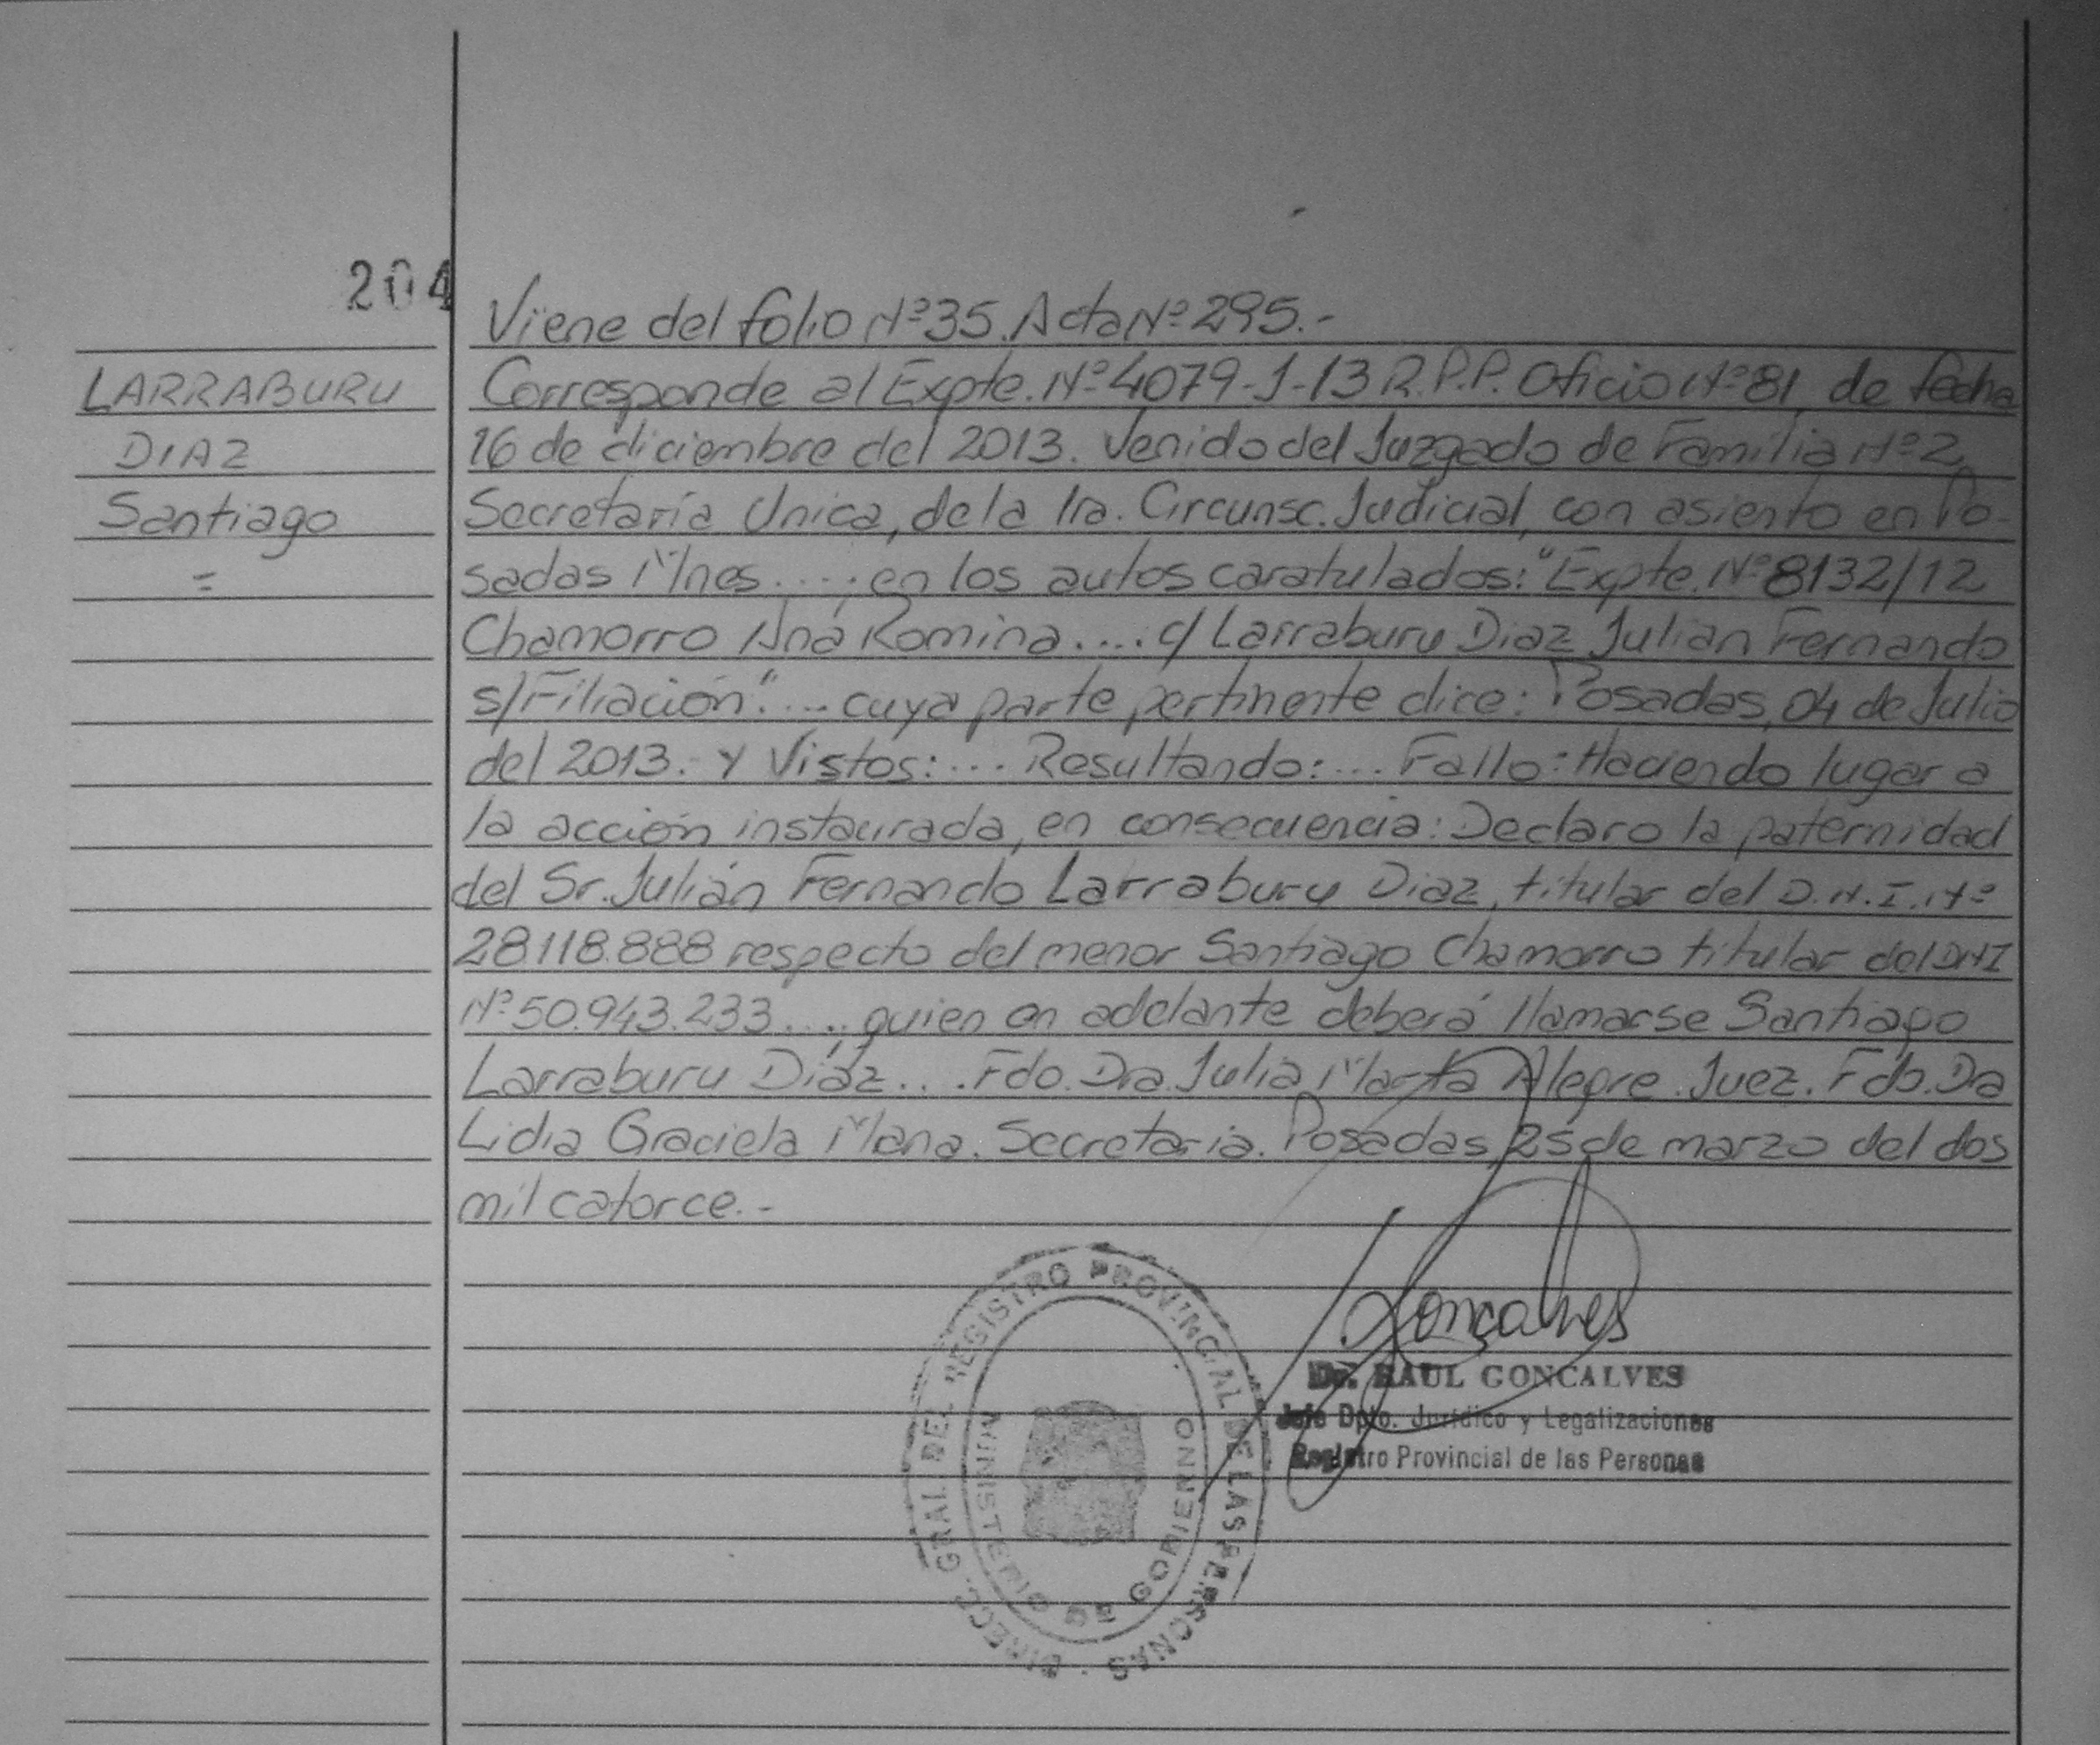 204
LARRABURU
DIAZ
Santiago
=
Viene del folio Nº 35. Acta Nº 295.-
Corresponde al Expte. Nº 4079-J-13 R.P.P. Oficio Nº 81, de fecha
16 de diciembre del 2013. Venido del Juzgado de Familia Nº 2,
Secretaría Unica, de la 1ra. Circunsc. Judicial, con asiento en Po-
sadas Mnes....; en los autos caratulados: "Expte. Nº 8132/12
Chamorro Ana Romina.... c/ Larraburu Diaz Julián Fernando
s/Filiación".... cuya parte pertinente dice: Posadas, 04 de Julio
del 2013.- Y Vistos:... Resultando:... Fallo: Haciendo lugar a
la acción instaurada, en consecuencia: Declaro la paternidad
del Sr. Julián Fernando Larraburu Diaz, titular del D.N.I. Nº
28.118.888 respecto del menor Santiago Chamorro titular del DNI
Nº 50.943.233...., quien en adelante deberá llamarse Santiago
Larraburu Díaz.... Fdo. Dra. Julia Marta Alegre. Juez. Fdo. Dra
Lidia Graciela Mana. Secretaria. Posadas, 25 de marzo del dos
mil catorce.-
Goncalves
Dr. RAUL GONCALVES
Jefe Dpto. Jurídico y Legalizaciones
Registro Provincial de las Personas
DIRECC. GRAL. DEL REGISTRO PROVINCIAL DE LAS PERSONAS
MINISTERIO DE GOBIERNO